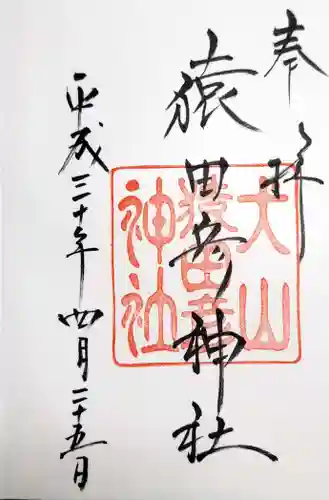 奉拝
猿田彦神社
平成三十年四月二十五日
犬山
猿田彦
神社